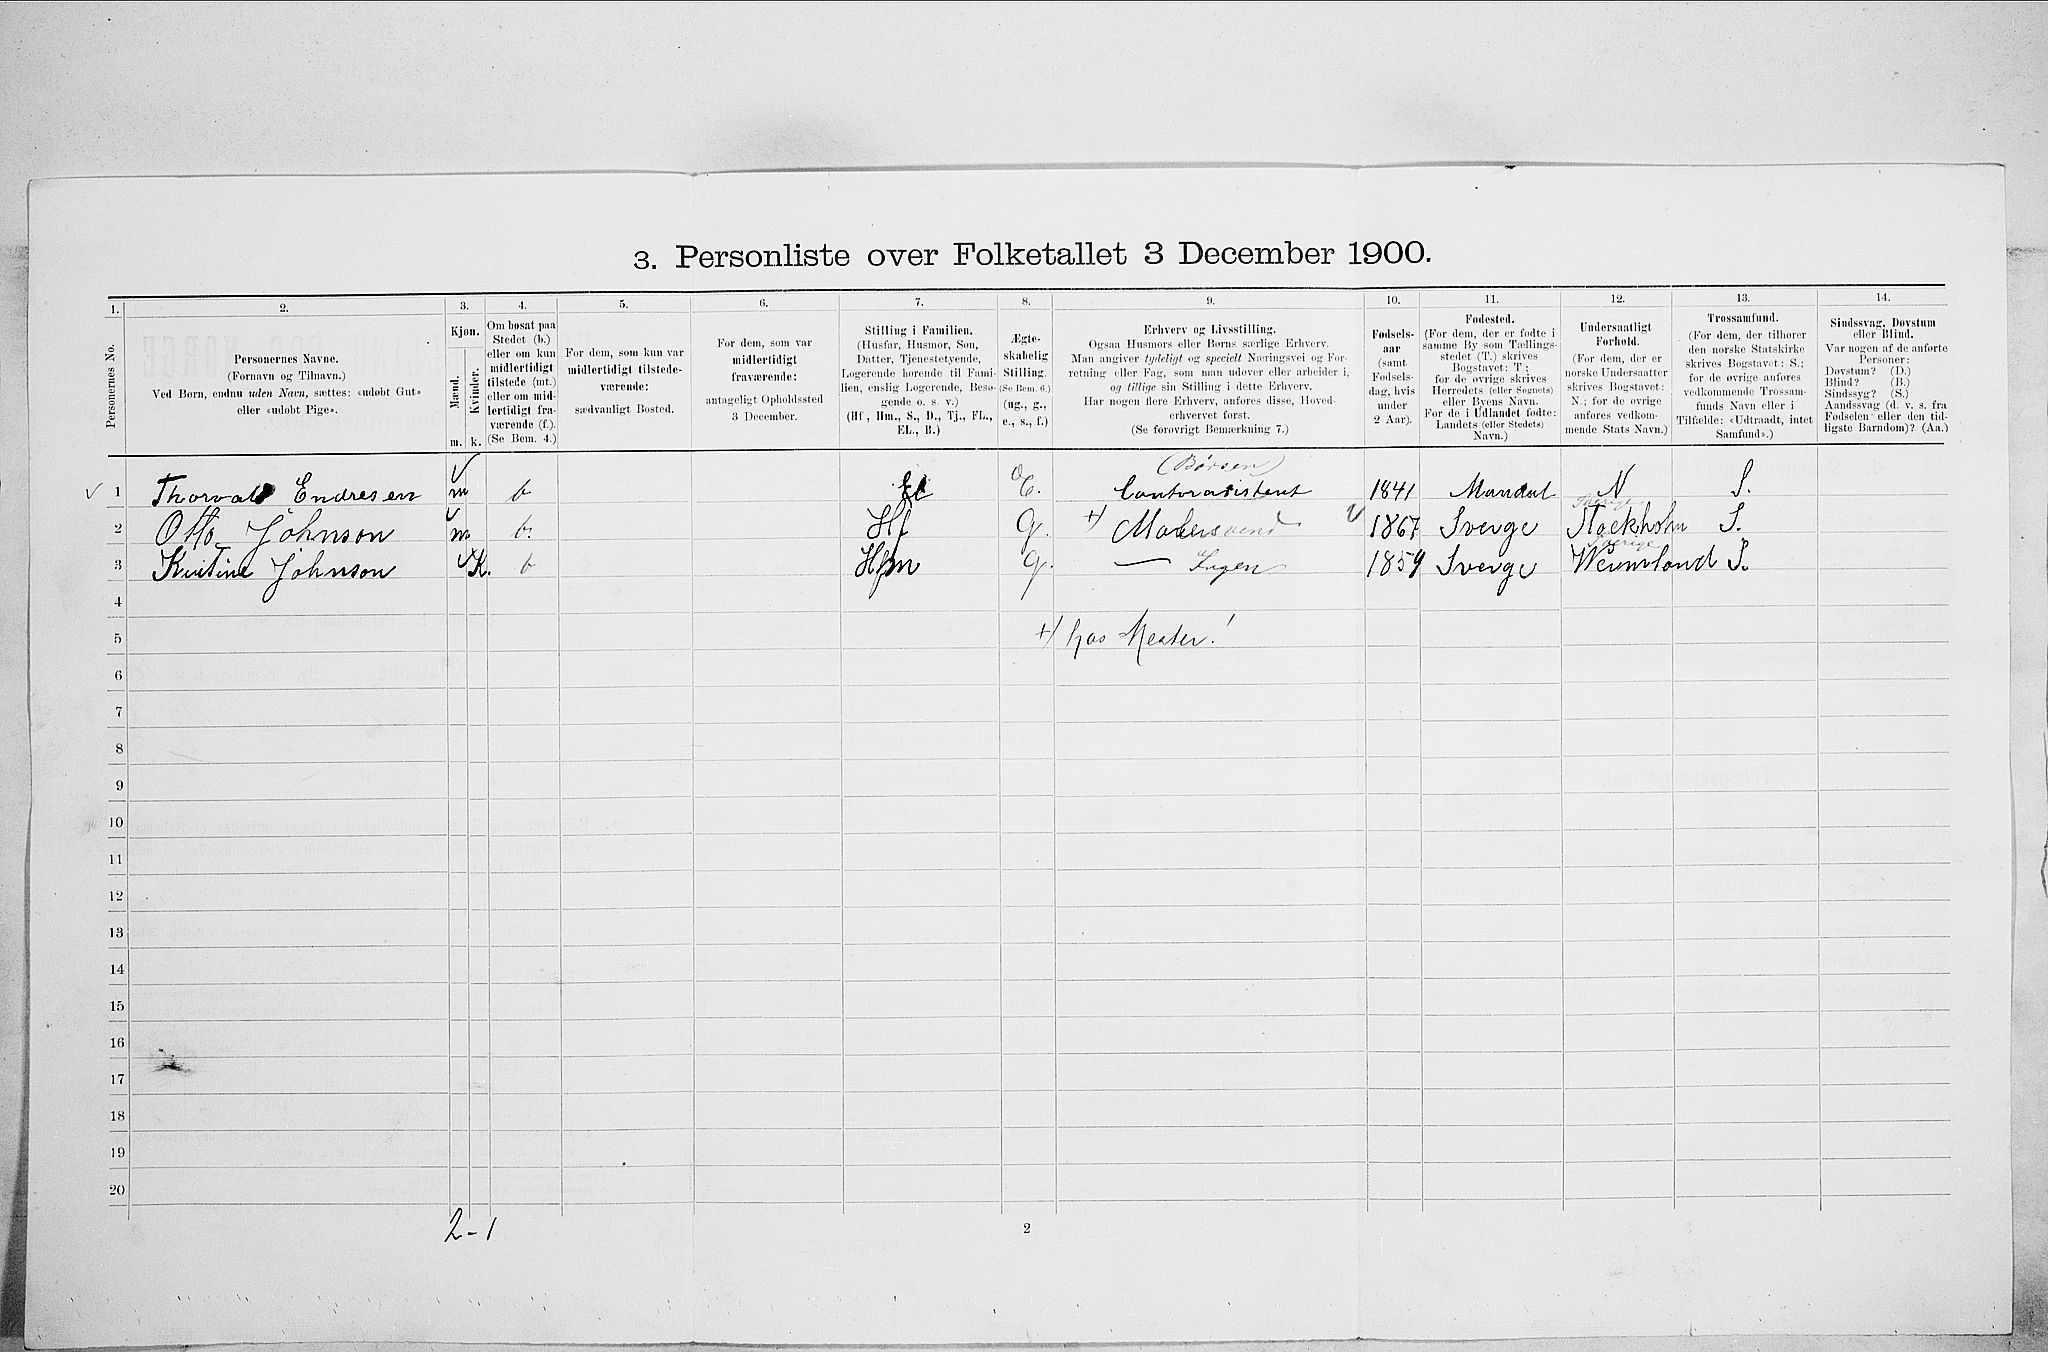 3. Personliste over Folketallet 3 December 1900.
1. 2. 3. 4. 5. 6. 7. 8. 9. 10. 11. 12. 13. 14.
Personernes No.
Personernes Navne.
(Fornavn og Tilnavn.)
Ved Børn, endnu uden Navn, sættes: «udøbt Gut»
eller «udøbt Pige».
Kjøn.
Mænd.
Kvinder.
m. k.
Om bosat paa
Stedet (b.)
eller om kun
midlertidigt
tilstede (mt.)
eller om mid-
lertidigt fra-
værende (f.).
(Se Bem. 4.)
For dem, som kun var
midlertidigt tilstede-
værende:
sædvanligt Bosted.
For dem, som var
midlertidigt
fraværende:
antageligt Opholdssted
3 December.
Stilling i Familien.
(Husfar, Husmor, Søn,
Datter, Tjenestetyende,
Logerende hørende til Fami-
lien, enslig Logerende, Besø-
gende o. s. v.)
(Hf., Hm., S., D., Tj., FL.,
EL., B.)
Ægte-
skabelig
Stilling.
(Se Bem. 6.)
(ug., g.,
e., s., f.)
Erhverv og Livsstilling.
Ogsaa Husmors eller Børns særlige Erhverv.
Man angiver tydeligt og specielt Næringsvei og For-
retning eller Fag, som man udøver eller arbeider i,
og tillige sin Stilling i dette Erhverv.
Har nogen flere Erhverv, anføres disse, Hoved-
erhvervet først.
(Se forøvrigt Bemærkning 7.)
Fødsels-
aar
(samt
Fødsels-
dag, hvis
under
2 Aar).
Fødested.
(For dem, der er fødte i
samme By som Tællings-
stedet (T.) skrives
Bogstavet: T ;
for de øvrige skrives
Herredets (eller Sognets)
eller Byens Navn.
For de i Udlandet fødte:
Landets (eller Stedets)
Navn.)
Undersaatligt
Forhold.
(For dem, der er
norske Undersaatter
skrives Bogstavet:
N.; for de øvrige
anføres vedkom-
mende Stats Navn.)
Trossamfund.
(For dem, der tilhører
den norske Statskirke
skrives Bogstavet: S.;
for de øvrige anføres
vedkommende Trossam-
funds Navn eller i
Tilfælde: «Udtraadt, intet
Samfund».)
Sindssvag, Døvstum
eller Blind.
Var nogen af de anførte
Personer:
Døvstum? (D.)
Blind? (B.)
Sindssyg? (S.)
Aandssvag (d. v. s. fra
Fødselen eller den tid-
ligste Barndom)? (Aa.)
(Børsen)
1 Thorvald Endresen m b El E. Contorasistent 1841 Mandal N S.
Sverige
2 Otto Johnson m b. Hf G. +) Malersvend 1867 Sverge Stockholm S.
Sverige
3 Kristine Johnson K. b Hm G. — Ingen 1859 Sverge Wermland S.
4
5 +) hos Mester!
6
7
8
9
10
11
12
13
14
15
16
17
18
19
20
2-1
2